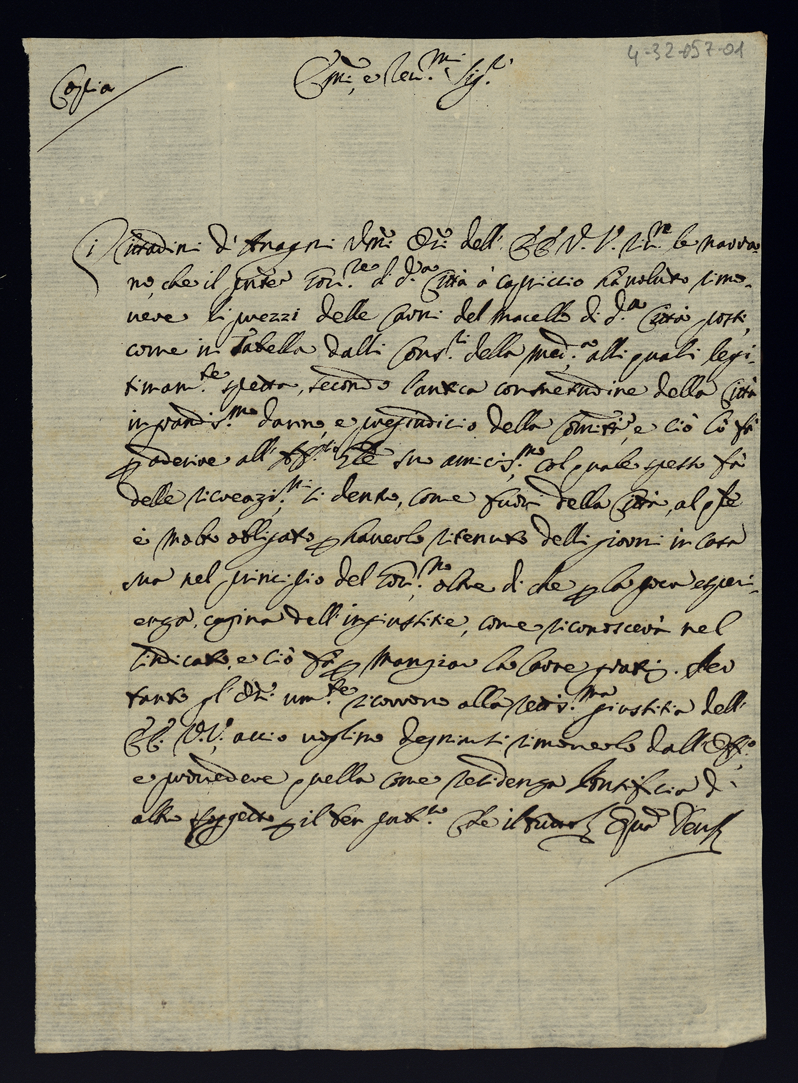 4-32-057-01
Copia
E.mi, e Rev.mi Sig.ri
i Cittadini d'Anagni Um.mi Or.ri dell' EE. VV. R.me le narra-
no, che il Gov.re di d.a Città à capriccio hà voluto rimo-
vere li prezzi delle carni del macello di d.a Città posti,
come in Tabella dalli Cons.ri della med.a alli quali legi-
timam.te spetta, secondo l'antica consuetudine della Città
in grandis.mo danno, e pregiudicio della Comm.tà, e ciò lo fà
p aderire all' su amicis.mo, col quale spesso fà
delle ricreaz.ni, sì dentro, come fuori della Città, al q.le
è molto obligato p haverlo ritenuto delli giorni in casa
sua nel principio del Gov.no, oltre di che p la poca esperi-
enza, cagina dell'ingiustitie, come riconoscerà nel
sindicato, e ciò fà p mangiar la carne gratis. Per
tanto gl'Or.i um.te ricorrono alla rettis.ma giustitia dell'
EE. VV., acciò voglino degnarsi rimoverlo dall'Off.o
e provedere quella come residenza Pontificia d'
altro soggetto p il ben pub.co Che il tutto Quas Deus